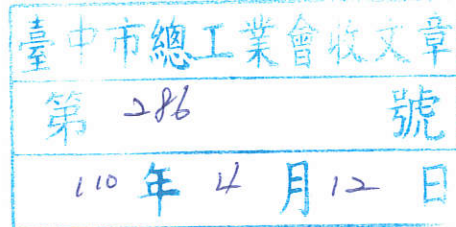 臺中市總工業會收文章
第 286 號
110 年 4 月 12 日